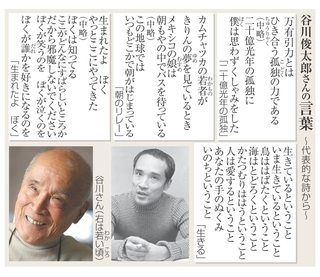 谷川俊太郎さんの言葉
〜代表的な詩から〜
万有引力とは
ひき合う孤独の力である
(中略)
二十億光年の孤独に
僕は思わずくしゃみをした
「二十億光年の孤独」
カムチャツカの若者が
きりんの夢を見ているとき
メキシコの娘は
朝もやの中でバスを待っている
(中略)
この地球では
いつもどこかで朝がはじまっている
「朝のリレー」
生まれたよ ぼく
やっとここにやってきた
(中略)
ぼくは知ってる
ここがどんなにすばらしいところか
だから邪魔しないでください
ぼくが笑うのを ぼくが泣くのを
ぼくが誰かを好きになるのを
「生まれたよ ぼく」
生きているということ
いま生きているということ
鳥ははばたくということ
海はとどろくということ
かたつむりははうということ
人は愛するということ
あなたの手のぬくみ
いのちということ
「生きる」
谷川さん(右は若い頃)